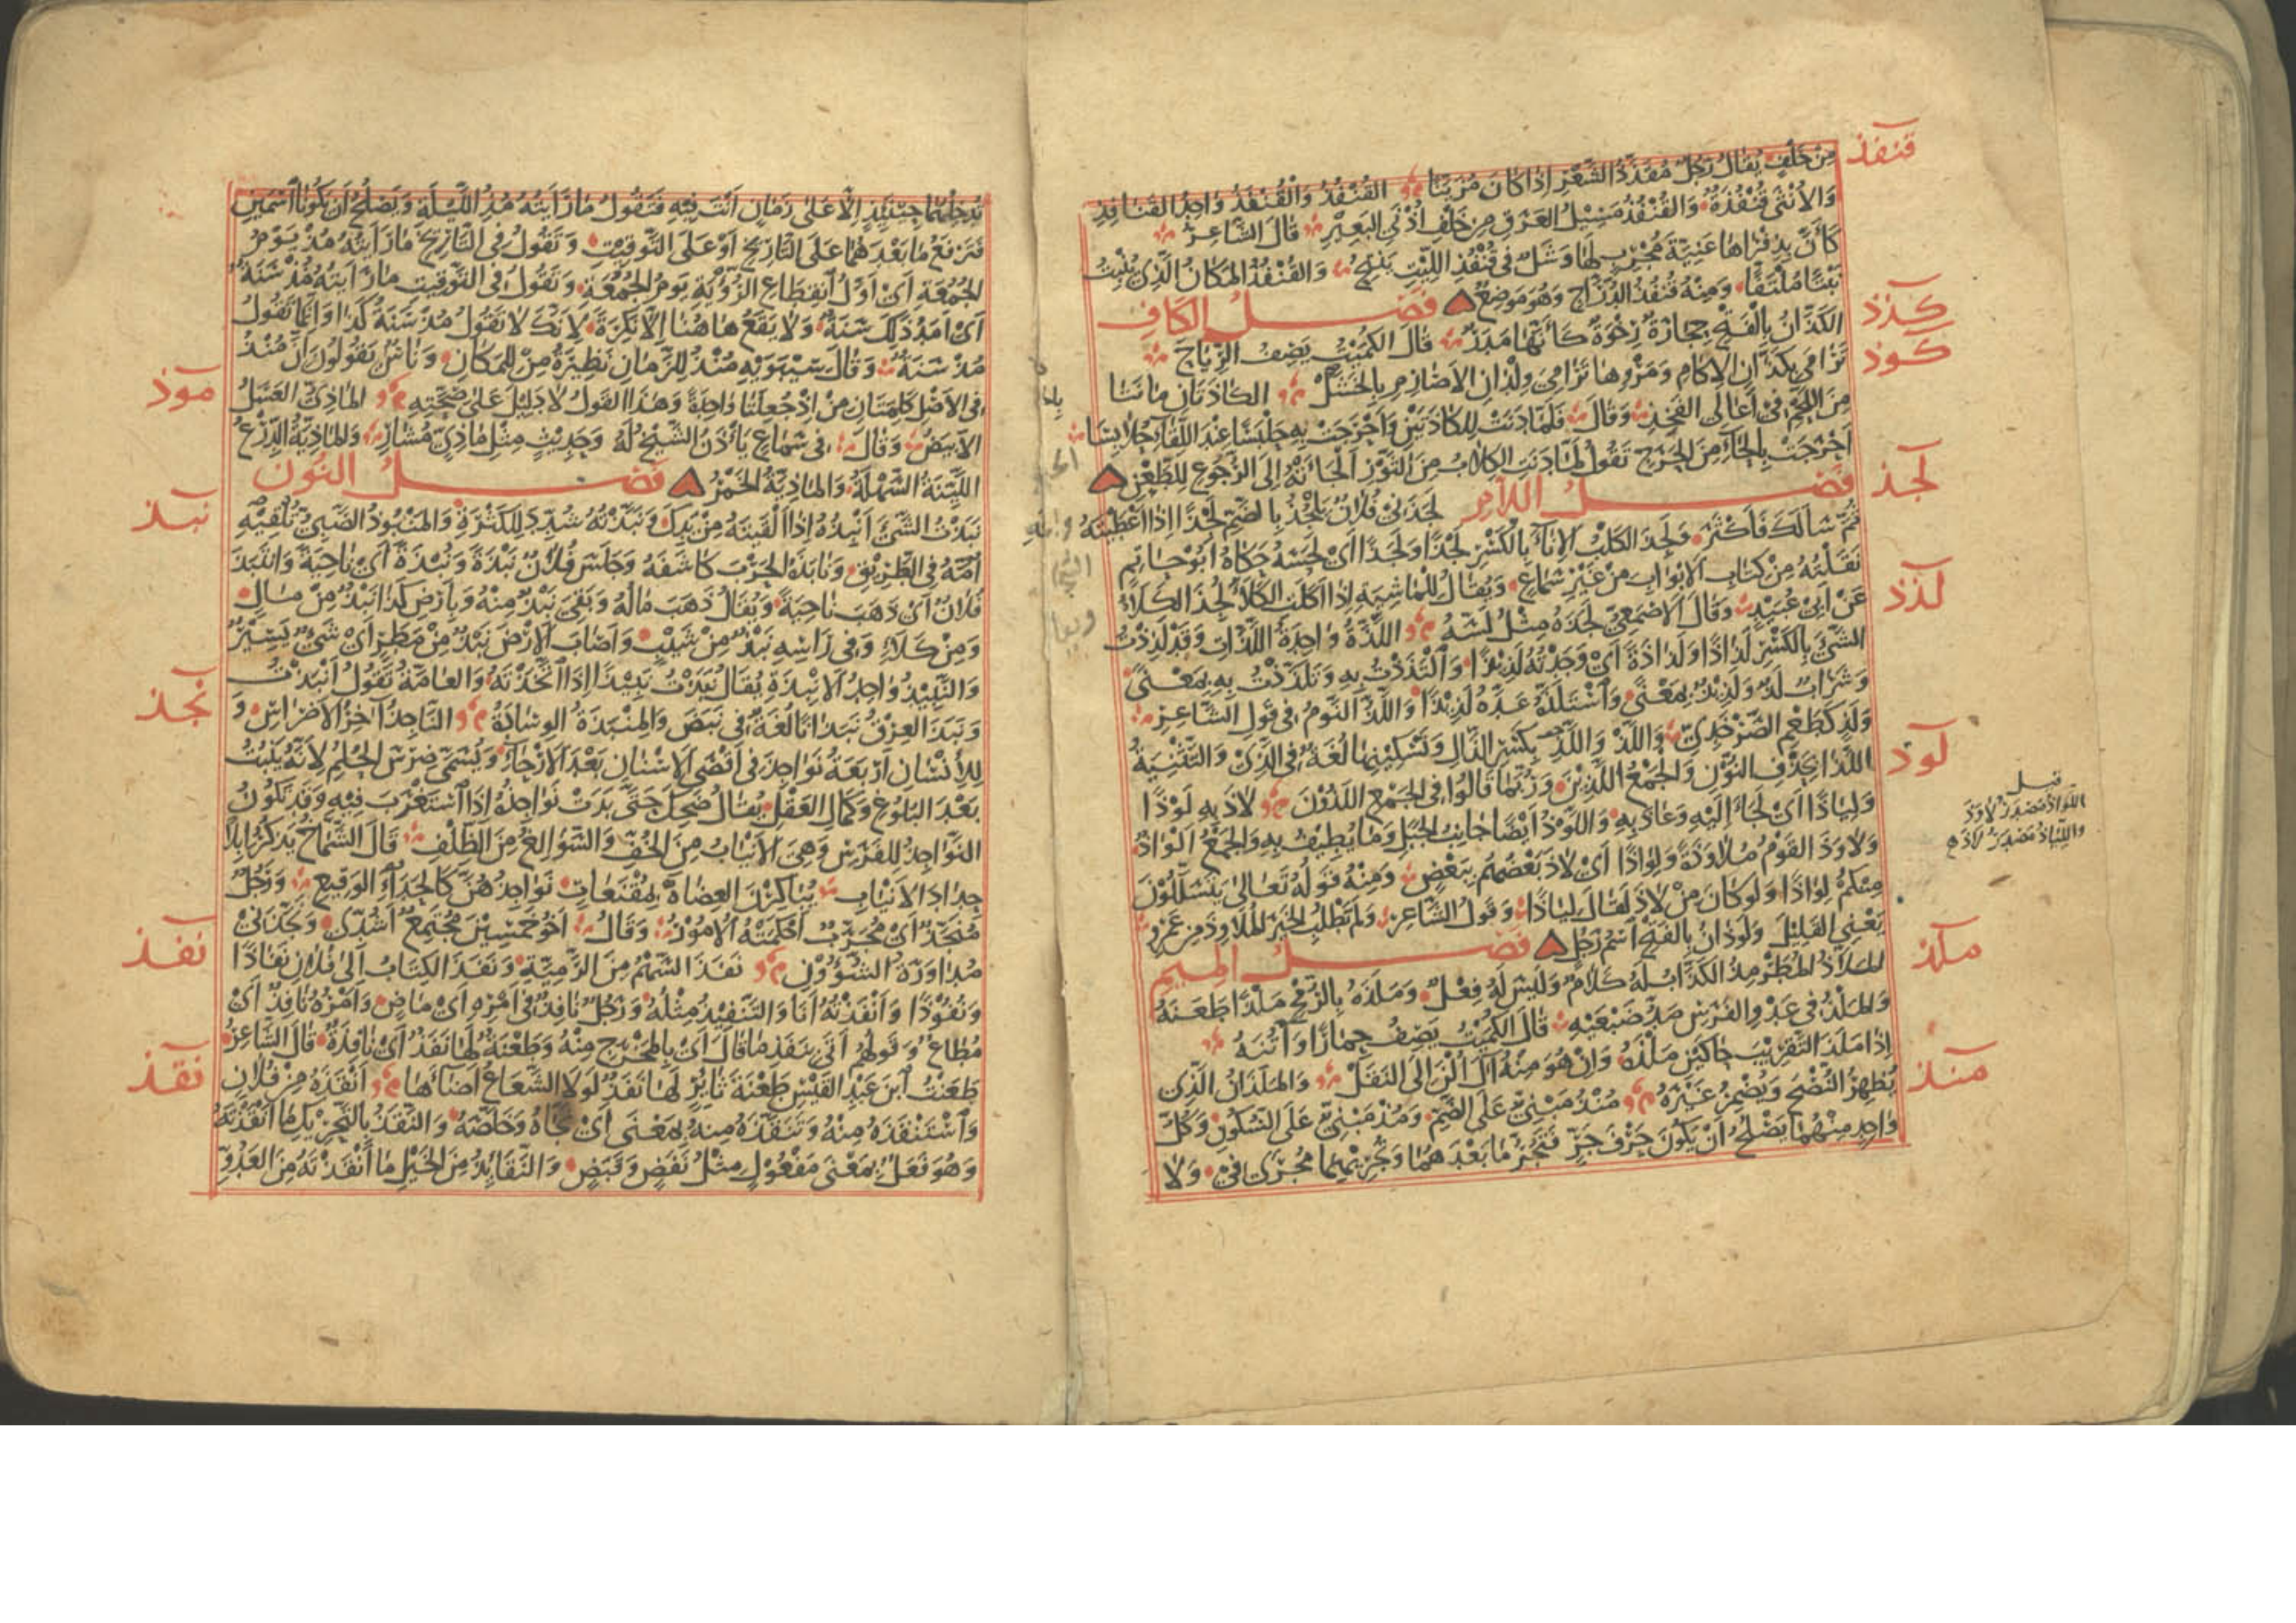 قنفذ
مِنْ خَلْفٍ يُقَالُ رَجُلٌ مُقَذَّذُ الشَّعْرِ إِذَا كَانَ مُزَيَّنًا القُنْفُذُ وَالْقُنْفَذُ وَاحِدُ القَنَافِذِ
وَالأُنْثَى قُنْفُذَةٌ وَالقُنْفُذُ مَسِيْلُ العَرَقِ مِنْ خَلْفِ أُذُنَيِ البَعِيْرِ قَالَ الشَّاعِرُ
كَأَنَّ بِذِفْرَاهَا عَنِيَّةَ مُجْرِبٍ لَهَا وَشَلٌ فِي قُنْفُذِ اللِّيْتِ يَنْتِحُ وَالقُنْفُذُ المَكَانُ الَّذِي يُنْبِتُ
نَبْتًا مُلْتَفًّا وَمِنْهُ قُنْفُذُ الدُّرَّاجِ وَهُوَ مَوْضِعٌ فصل الكاف
كذذ
الكَذَّانُ بِالْفَتْحِ حِجَارَةٌ رِخْوَةٌ كَأَنَّهَا مَدَرٌ قَالَ الكُمَيْتُ يَصِفُ الرِّيَاحَ
كوذ
تَرَامَى بِكَذَّانِ الإِكَامِ وَمَرْوِهَا تَرَامِيَ وِلْدَانِ الأَصَارِمِ بِالْخَشْلِ الكَاذَتَانِ مَا نَتَا
مِنَ اللَّحْمِ فِي أَعَالِي الفَخِذِ وَقَالَ فَلَمَّا دَنَتْ لِلْكَاذَتَيْنِ وَأَحْرَجَتْ بِهِ حَلْبَسًا عِنْدَ اللِّقَاءِ حُلَابِسَا
أَحْرَجَتْ بِالْحَاءِ مِنَ الحَرَجِ تَقُولُ لَمَّا دَنَتِ الكِلَابُ مِنَ الثَّوْرِ أَلْجَأَتْهُ إِلَى الرُّجُوعِ لِلطَّعْنِ
لجذ
فصل اللام لَجَذَنِي فُلَانٌ يَلْجُذُ بِالضَّمِّ لَجْذًا إِذَا أَعْطَيْتَهُ
ثُمَّ سَأَلَكَ فَأَكْثَرَ وَلَجِذَ الكَلْبُ الإِنَاءَ بِالْكَسْرِ لَجْذًا وَلَجَذًا أَيْ لَحِسَهُ حَكَاهُ أَبُو حَاتِمٍ
نَقَلْتُهُ مِنْ كِتَابِ الأَبْوَابِ مِنْ غَيْرِ سَمَاعٍ وَيُقَالُ لِلْمَاشِيَةِ إِذَا أَكَلَتِ الكَلَأَ لَجَذَ الكَلَأَ
لذذ
عَنْ أَبِي عُبَيْدٍ وَقَالَ الأَصْمَعِيُّ لَجَذَهُ مِثْلُ لَسَّهُ اللَّذَّةُ وَاحِدَةُ اللَّذَّاتِ وَقَدْ لَذِذْتُ
الشَّيْءَ بِالْكَسْرِ لَذَاذًا وَلَذَاذَةً أَيْ وَجَدْتُهُ لَذِيْذًا وَالْتَذَذْتُ بِهِ وَتَلَذَّذْتُ بِهِ بِمَعْنًى
وَشَرَابٌ لَذٌّ وَلَذِيْذٌ بِمَعْنًى وَاسْتَلَذَّهُ عَدَّهُ لَذِيْذًا وَاللَّذُّ النَّوْمُ فِي قَوْلِ الشَّاعِرِ
وَلَذٍّ كَطَعْمِ الصَّرْخَدِيِّ وَاللَّذِ وَاللَّذْ بِكَسْرِ الذَّالِ وَتَسْكِيْنِهَا لُغَةٌ فِي الَّذِيْ وَالتَّثْنِيَةُ
لوذ
اللَّذَا بِحَذْفِ النُّوْنِ وَالجَمْعُ الَّذِيْنَ وَرُبَّمَا قَالُوا فِي الجَمْعِ اللَّذُوْنَ لَاذَ بِهِ لَوْذًا
وَلِيَاذًا أَيْ لَجَأَ إِلَيْهِ وَعَاذَ بِهِ وَاللَّوْذُ أَيْضًا جَانِبُ الجَبَلِ وَمَا يُطِيْفُ بِهِ وَالجَمْعُ أَلْوَاذٌ
قيل
اللِّوَاذُ مَصْدَرُ لَاوَذَ
وَاللِّيَاذُ مَصْدَرُ لَاذَ
وَلَاوَذَ القَوْمُ مُلَاوَذَةً وَلِوَاذًا أَيْ لَاذَ بَعْضُهُمْ بِبَعْضٍ وَمِنْهُ قَوْلُهُ تَعَالَى يَتَسَلَّلُوْنَ
مِنْكُمْ لِوَاذًا وَلَوْ كَانَ مِنْ لَاذَ لَقَالَ لِيَاذًا وَقَوْلُ الشَّاعِرِ وَلَمْ تَطْلُبِ الخَيْرَ المُلَاوِذَ مِنْ عَمْرٍو
يَعْنِي القَلِيْلَ وَلَوْذَانُ بِالفَتْحِ اسْمُ رَجُلٍ فصل الميم
ملذ
المَلَّاذُ المُطَرْمِذُ الكَذَّابُ لَهُ كَلَامٌ وَلَيْسَ لَهُ فِعْلٌ وَمَلَذَهُ بِالرُّمْحِ مَلْذًا طَعَنَهُ
وَالمَلْذُ فِي عَدْوِ الفَرَسِ مَدُّ ضَبْعَيْهِ قَالَ الكُمَيْتُ يَصِفُ حِمَارًا وَأُتُنَهُ
إِذَا مَلَذَ التَّقْرِيْبَ حَاكَيْنَ مَلْذَهُ وَإِنْ هُوَ مِنْهُ آلَ أُلْنَ إِلَى النَّقَلْ وَالمَلَذَانُ الَّذِي
منذ
يُظْهِرُ النُّصْحَ وَيُضْمِرُ غَيْرَهُ مُنْذُ مَبْنِيٌّ عَلَى الضَّمِّ وَمُذْ مَبْنِيٌّ عَلَى السُّكُوْنِ وَكُلُّ
وَاحِدٍ مِنْهُمَا يَصْلُحُ أَنْ يَكُوْنَ حَرْفَ جَرٍّ فَتَجُرُّ مَا بَعْدَهُمَا وَتُجْرِيْهِمَا مُجْرَى فِي وَلَا
تُدْخِلُهُمَا حِيْنَئِذٍ إِلَّا عَلَى زَمَانٍ أَنْتَ فِيْهِ فَتَقُولُ مَا رَأَيْتُهُ مُذِ اللَّيْلَةِ وَيَصْلُحُ أَنْ يَكُوْنَا اسْمَيْنِ
فَتَرْفَعُ مَا بَعْدَهُمَا عَلَى التَّارِيْخِ أَوْ عَلَى التَّوْقِيْتِ وَتَقُولُ فِي التَّارِيْخِ مَا رَأَيْتُهُ مُذْ يَوْمُ
الجُمُعَةِ أَيْ أَوَّلُ انْقِطَاعِ الرُّؤْيَةِ يَوْمُ الجُمُعَةِ وَتَقُولُ فِي التَّوْقِيْتِ مَا رَأَيْتُهُ مُذْ سَنَةٌ
أَيْ أَمَدُ ذَلِكَ سَنَةٌ وَلَا يَقَعُ هَاهُنَا إِلَّا نَكِرَةً لِأَنَّكَ لَا تَقُولُ مُذْ سَنَةُ كَذَا وَإِنَّمَا تَقُولُ
مُذْ سَنَةٌ وَقَالَ سِيْبَوَيْهِ مُنْذُ لِلزَّمَانِ نَظِيْرَةُ مِنْ لِلْمَكَانِ وَنَاسٌ يَقُولُوْنَ إِنَّ مُنْذُ
موذ
فِي الأَصْلِ كَلِمَتَانِ مِنْ إِذْ جُعِلَتَا وَاحِدَةً وَهَذَا القَوْلُ لَا دَلِيْلَ عَلَى صِحَّتِهِ المَاذِيُّ العَسَلُ
الأَبْيَضُ وَقَالَ فِي سَمَاعٍ يَأْذَنُ الشَّيْخُ لَهُ وَحَدِيْثٍ مِثْلِ مَاذِيٍّ مُشَارْ وَالمَاذِيَّةُ الدِّرْعُ
اللَّيِّنَةُ السَّهْلَةُ وَالمَاذِيَّةُ الخَمْرُ فصل النون
نبذ
نَبَذْتُ الشَّيْءَ أَنْبِذُهُ إِذَا أَلْقَيْتَهُ مِنْ يَدِكَ وَنَبَّذْتُهُ شُدِّدَ لِلْكَثْرَةِ وَالمَنْبُوْذُ الصَّبِيُّ تُلْقِيْهِ
أُمُّهُ فِي الطَّرِيْقِ وَنَابَذَهُ الحَرْبَ كَاشَفَهُ وَجَلَسَ فُلَانٌ نَبْذَةً وَنُبْذَةً أَيْ نَاحِيَةً وَانْتَبَذَ
فُلَانٌ أَيْ ذَهَبَ نَاحِيَةً وَيُقَالُ ذَهَبَ مَالُهُ وَبَقِيَ نَبْذٌ مِنْهُ وَبِأَرْضِ كَذَا نَبْذٌ مِنْ مَالٍ
وَمِنْ كَلَاءٍ وَفِي رَأْسِهِ نَبْذٌ مِنْ شَيْبٍ وَأَصَابَ الأَرْضَ نَبْذٌ مِنْ مَطَرٍ أَيْ شَيْءٌ يَسِيْرٌ
وَالنَّبِيْذُ وَاحِدُ الأَنْبِذَةِ يُقَالُ نَبَذْتُ نَبِيْذًا إِذَا اتَّخَذْتَهُ وَالعَامَّةُ تَقُولُ أَنْبَذْتُ
نجذ
وَنَبَذَ العِرْقُ نَبَذَانًا لُغَةٌ فِي نَبَضَ وَالمِنْبَذَةُ الوِسَادَةُ النَّاجِذُ آخِرُ الأَضْرَاسِ وَ
لِلْإِنْسَانِ أَرْبَعَةُ نَوَاجِذَ فِي أَقْصَى الأَسْنَانِ بَعْدَ الأَرْحَاءِ وَيُسَمَّى ضِرْسَ الحُلُمِ لِأَنَّهُ يَنْبُتُ
بَعْدَ البُلُوْغِ وَكَمَالِ العَقْلِ يُقَالُ ضَحِكَ حَتَّى بَدَتْ نَوَاجِذُهُ إِذَا اسْتَغْرَبَ فِيْهِ وَقَدْ تَكُوْنُ
النَّوَاجِذُ لِلْفَرَسِ وَهِيَ الأَنْيَابُ مِنَ الخُفِّ وَالسَّوَالِغُ مِنَ الظِّلْفِ قَالَ الشَّمَّاخُ يَذْكُرُ إِبِلًا
حِدَادَ الأَنْيَابِ يُبَاكِرْنَ العِضَاهَ بِمُقْنَعَاتٍ نَوَاجِذُهُنَّ كَالحَدَإِ الوَقِيْعِ وَرَجُلٌ
مُنَجَّذٌ أَيْ مُجَرَّبٌ أَحْكَمَتْهُ الأُمُوْرُ وَقَالَ أَخُو خَمْسِيْنَ مُجْتَمِعٌ أَشُدِّي وَنَجَّذَنِي
نفذ
مُدَاوَرَةُ الشُّؤُوْنِ نَفَذَ السَّهْمُ مِنَ الرَّمِيَّةِ وَنَفَذَ الكِتَابُ إِلَى فُلَانٍ نَفَاذًا
وَنُفُوْذًا وَأَنْفَذْتُهُ أَنَا وَالتَّنْفِيْذُ مِثْلُهُ وَرَجُلٌ نَافِذٌ فِي أَمْرِهِ أَيْ مَاضٍ وَأَمْرُهُ نَافِذٌ أَيْ
مُطَاعٌ وَقَوْلُهُمْ أَتَى بِنَفَذِ مَا قَالَ أَيْ بِالمَخْرَجِ مِنْهُ وَطَعْنَةٌ لَهَا نَفَذٌ أَيْ نَافِذَةٌ قَالَ الشَّاعِرُ
نقذ
طَعَنْتُ ابْنَ عَبْدِ القَيْسِ طَعْنَةَ ثَائِرٍ لَهَا نَفَذٌ لَوْلَا الشَّعَاعُ أَضَاءَهَا أَنْقَذَهُ مِنْ فُلَانٍ
وَاسْتَنْقَذَهُ مِنْهُ وَتَنَقَّذَهُ مِنْهُ بِمَعْنًى أَيْ نَجَّاهُ وَخَلَّصَهُ وَالنَّقَذُ بِالتَّحْرِيْكِ مَا أَنْقَذْتَهُ
وَهُوَ فَعَلٌ بِمَعْنَى مَفْعُوْلٍ مِثْلُ نَفَضٍ وَقَبَضٍ وَالنَّقَائِذُ مِنَ الخَيْلِ مَا أَنْقَذْتَهُ مِنَ العَدُوِّ